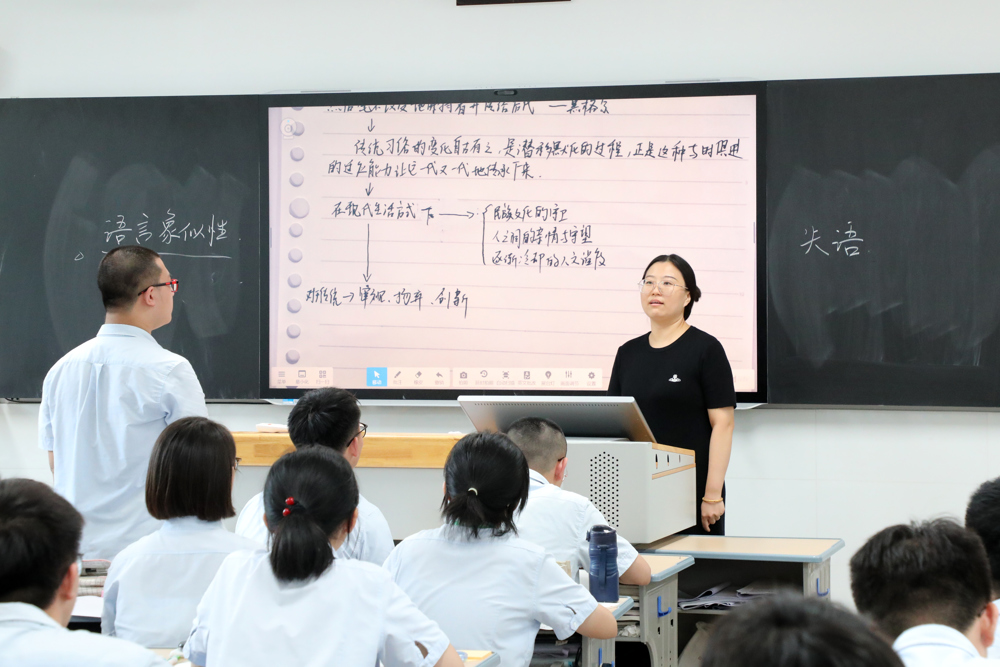 语言象似性
——黑格尔
↓
传统习俗的变化自古有之,是潜移默化的过程,正是这种与时俱进
的过人能力让它一代又一代地传承下来.
↓
在现代生活方式下 → { 民族文化的守卫
人之间的亲情与守望
逐渐冷却的人文
对传统→审视、扬弃、创新
失语